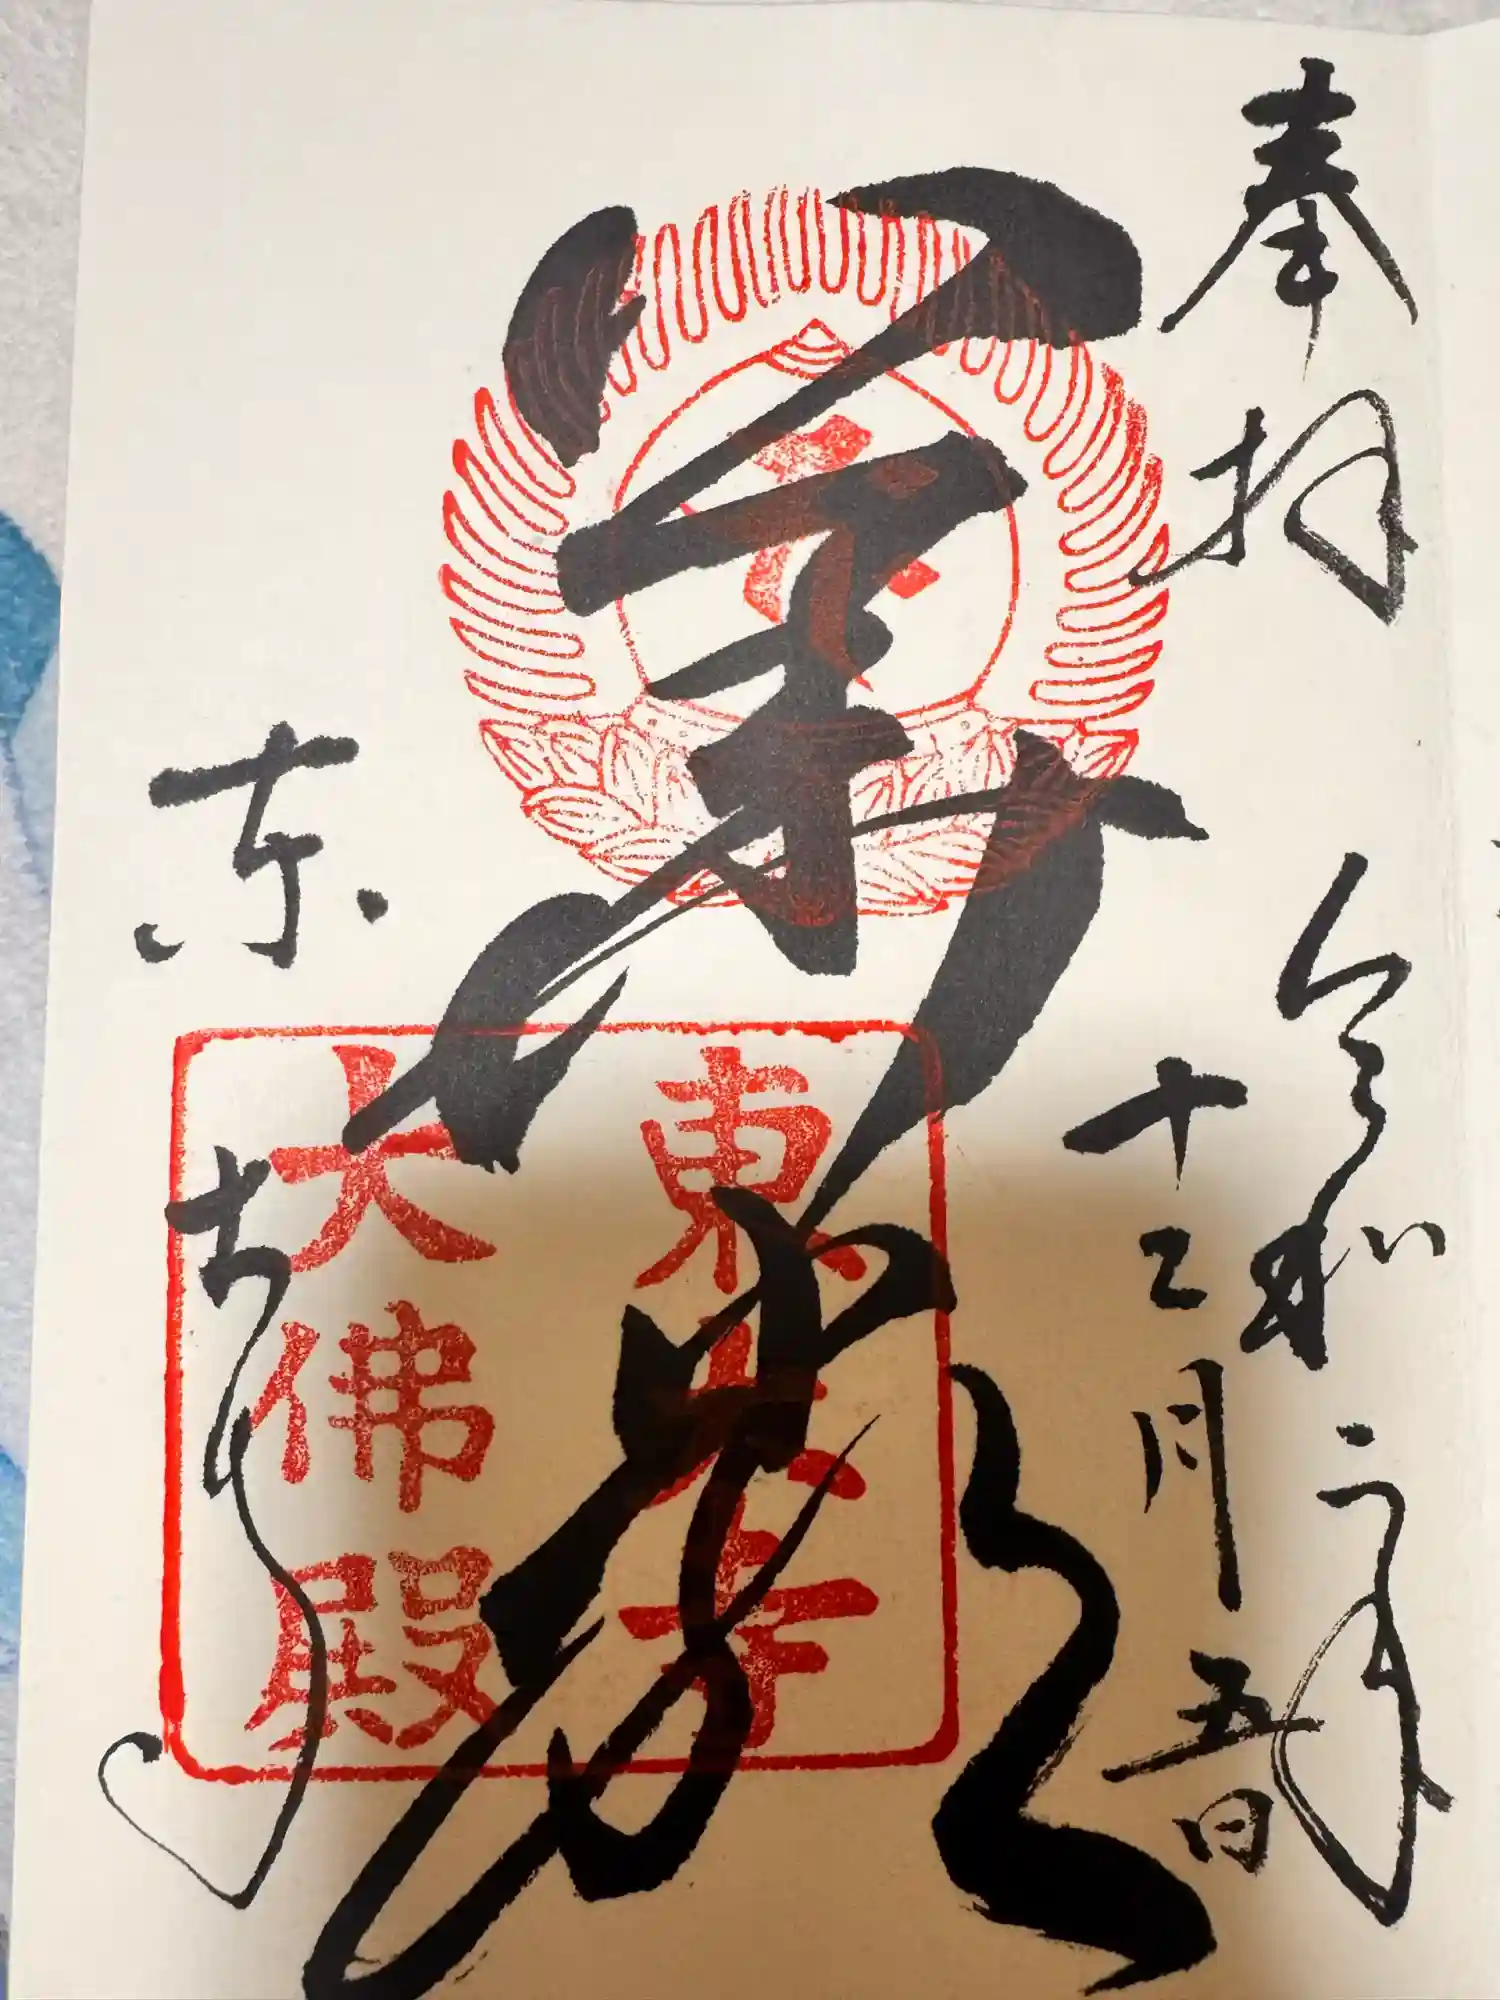 奉拝
令和二年
十二月五日
華嚴
東大寺
東大寺
大佛殿